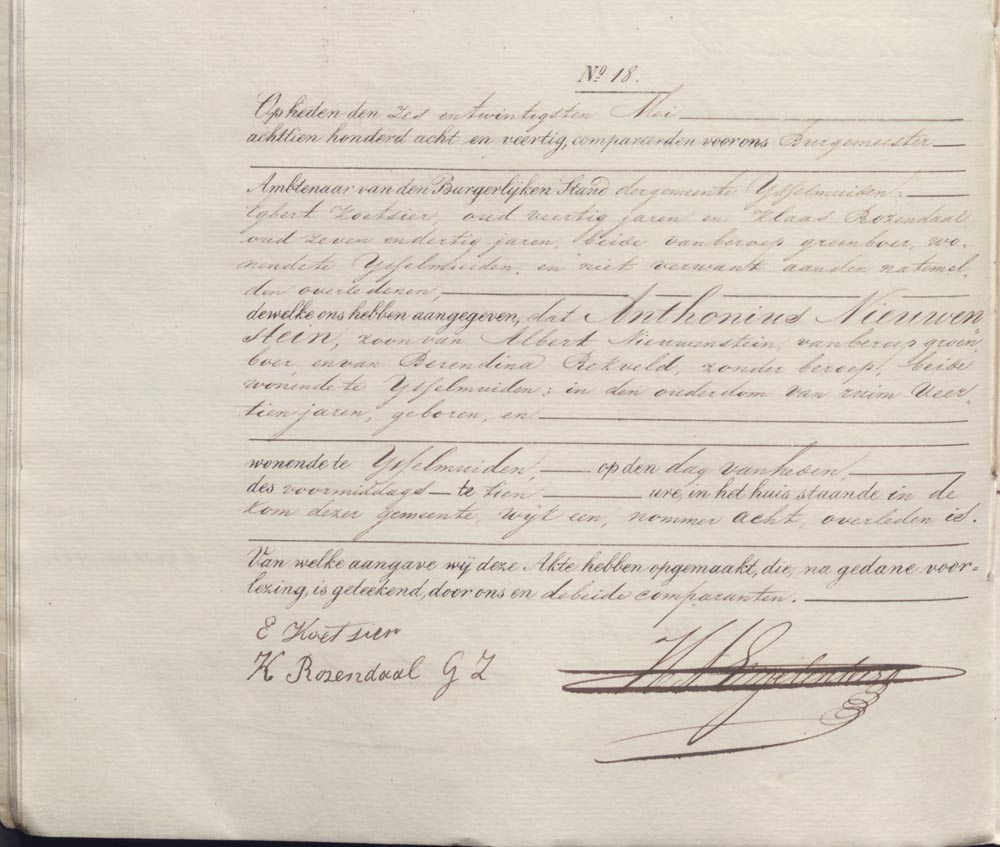 No 18.
Op heden den zes en twintigsten Mei
achttien honderd acht en veertig, compareerden voor ons Burgemeester
Ambtenaar van den Burgerlijken Stand der gemeente Ysselmuiden:
Egbert Koetsier, oud veertig jaren en Klaas Rozendaal
oud zeven en dertig jaren, beide van beroep groenboer, wo-
nende te Ysselmuiden, en niet verwant aan den natemel,
den overledenen,
dewelke ons hebben aangegeven, dat Anthonius Nieuwen-
stein, zoon van Albert Nieuwenstein, van beroep groen
boer, en van Berendina Rekveld, zonder beroep, beide
wonende te Ysselmuiden; in den ouderdom van ruim veer-
tien jaren, geboren, en
wonende te Ysselmuiden, op den dag van heden,
des voormiddags te tien ure, in het huis staande in de
kom dezer gemeente, wijk een, nommer acht, overleden is.
Van welke aangave wij deze Akte hebben opgemaakt, die, na gedane voor-
lezing, is geteekend, door ons en de beide comparanten.
E Koetsier
K Rozendaal G Z